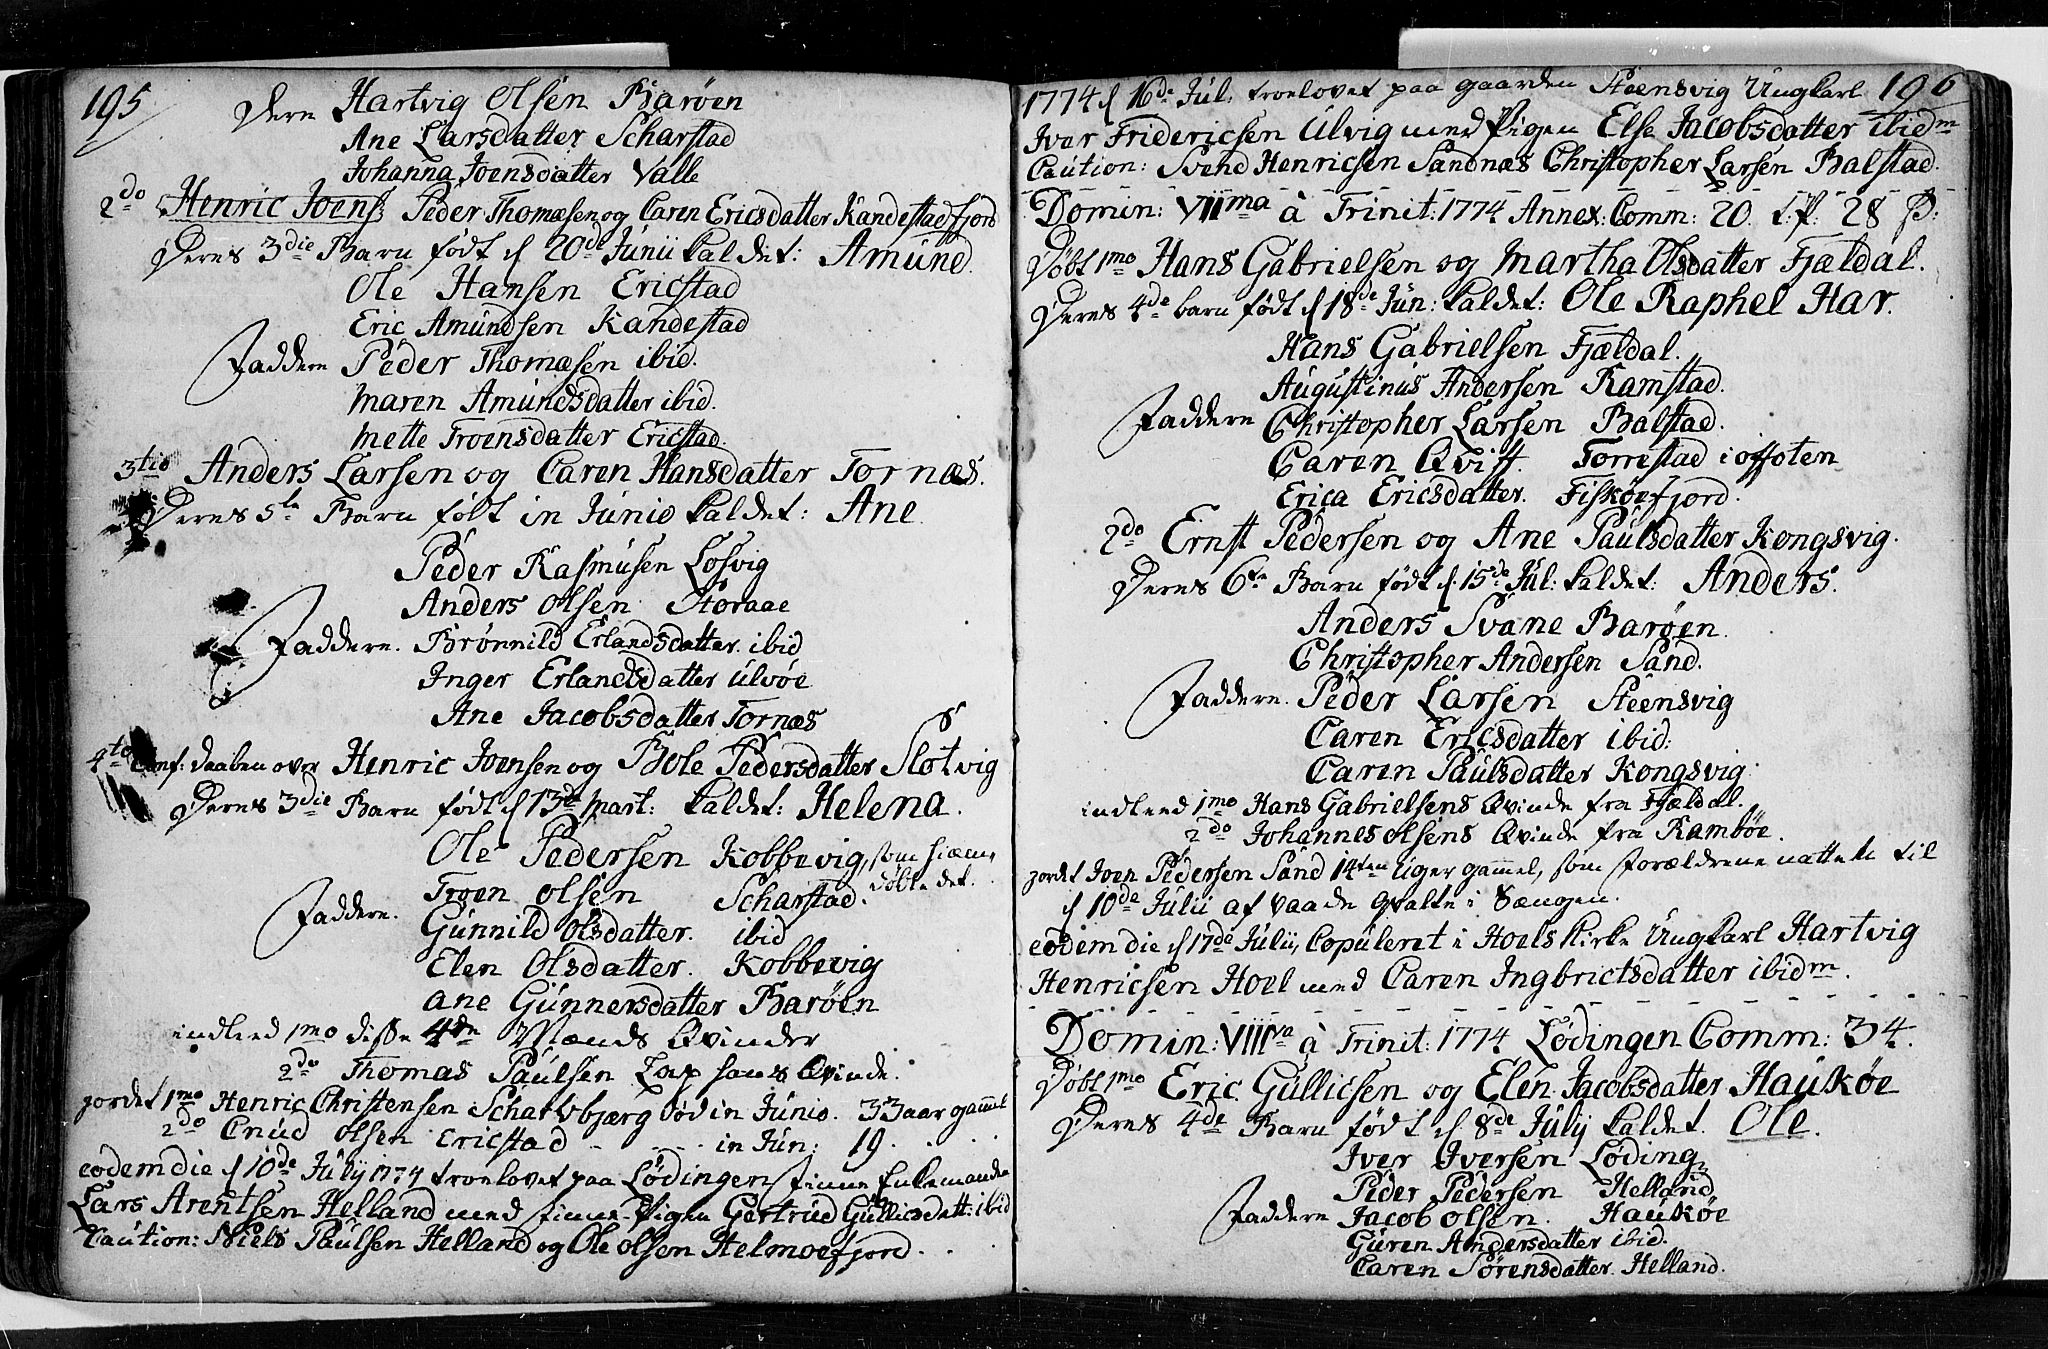 195
Dern Hartvig Olsen Barøen
Ane Larsdatter Scharstad
Johanna Joensdatter Valle
2do Henric Joens. Peder Thomæsen og Caren Ericsdatter Kandestadfjord
Deres 3die Barn født d 20de Junii kaldet: Amund.
Ole Hansen Ericstad
Eric Amundsen Kandestad
Faddere Peder Thomæsen ibid.
Maren Amundsdatter ibid.
Mette Troensdatter Ericstad.
3tio Anders Larsen og Caren Hansdatter Tornæs.
Deres 5te Barn født in Junio kaldet: Ane.
Peder Rasmusen Losvig
Anders Olsen Storaae
Faddere. Brønnild Erlandsdatter ibid
Inger Erlandsdatter Ulvøe
Ane Jacobsdatter Tornæs
4to Conf: Daaben over Henric Joensen og Bole Pedersdatter Slotvig
Deres 3die Barn født d 13de Mart: kaldet: Helena.
Ole Pedersen Kobbevig, som hiem,
døbte det.
Troen Olsen Scharstad.
Faddere. Gunnild Olsdatter. ibid
Elen Olsdatter. Kobbevig
Ane Gunnersdatter Barøen
indleed 1mo disse 4de Mænds Qvinder
2do Thomas Paulsen Lap hans Qvinde.
jordet 1mo Henric Christensen Scharvbjærg død in Junio. 33 aar gamel
2do Cnud Olsen Ericstad - - - - in Jun: 19. . . .
eodem die d 10de Julij 1774 troelovet paa Lødingen Finne Enkemanden
Lars Arentsen Helland med Finne Pigen Gertrud Gullicsdatt: ibid
Caution: Niels Paulsen Helland og Ole Olsen Helmoefjord. . .
1774 d 16de Jul: troelovet paa gaarden Steensvig Ungkarl 196
Iver Fridericsen Ulvig med Pigen Else Jacobsdatter ibidm
Caution: Svend Henricsen Sandnæs Christopher Larsen Balstad.
Domin: VIIma à Trinit: 1774 Annex: Comm: 20. t. P: 28 S:
Døbt 1mo Hans Gabrielsen og Martha Olsdatter Fjældal.
Deres 4de barn født d 18de Jun: kaldet: Ole Raphel Har.
Hans Gabrielsen Fjældal.
Augustinus Andersen Ramstad.
Faddere Christopher Larsen Balstad.
Caren Qvist. Torrestad i Offoten
Erica Ericsdatter. Fiskøefjord.
2do Ernst Pedersen og Ane Paulsdatter Kongsvig.
Deres 6te Barn født d. 15de Jul: kaldet: Anders.
Anders Svane Barøen.
Christopher Andersen Sand.
Faddere. Peder Larsen Steensvig
Caren Ericsdatter ibid:
Caren Paulsdatter Kongsvig.
indleed 1mo Hans Gabrielsens Qvinde fra Fjældal.
2do Johannes Olsens Qvinde fra Rambøe.
jordet Iven Pedersen Sand 14ten Uger gammel, som Forældrene natten til
d 10de Julii af vaade qvalte i Sængen.
eodem die d 17de Julii, Copuleret i Hoels Kirke Ungkarl Hartvig
Henricsen Hoel med Caren Ingbrictsdatter ibidm.
Domin: VIIIva à Trinit: 1774 Lødingen Comm: 34.
Døbt 1mo Eric Gullicsen og Elen Jacobsdatter Haukøe
Deres 4de Barn født d 8de Julij kaldet. Ole.
Iver Iversen Løding
Peder Pedersen Helland
Faddere Jacob Olsen. Haukøe
Guren Andersdatter ibid.
Caren Sørensdatter. Helland.